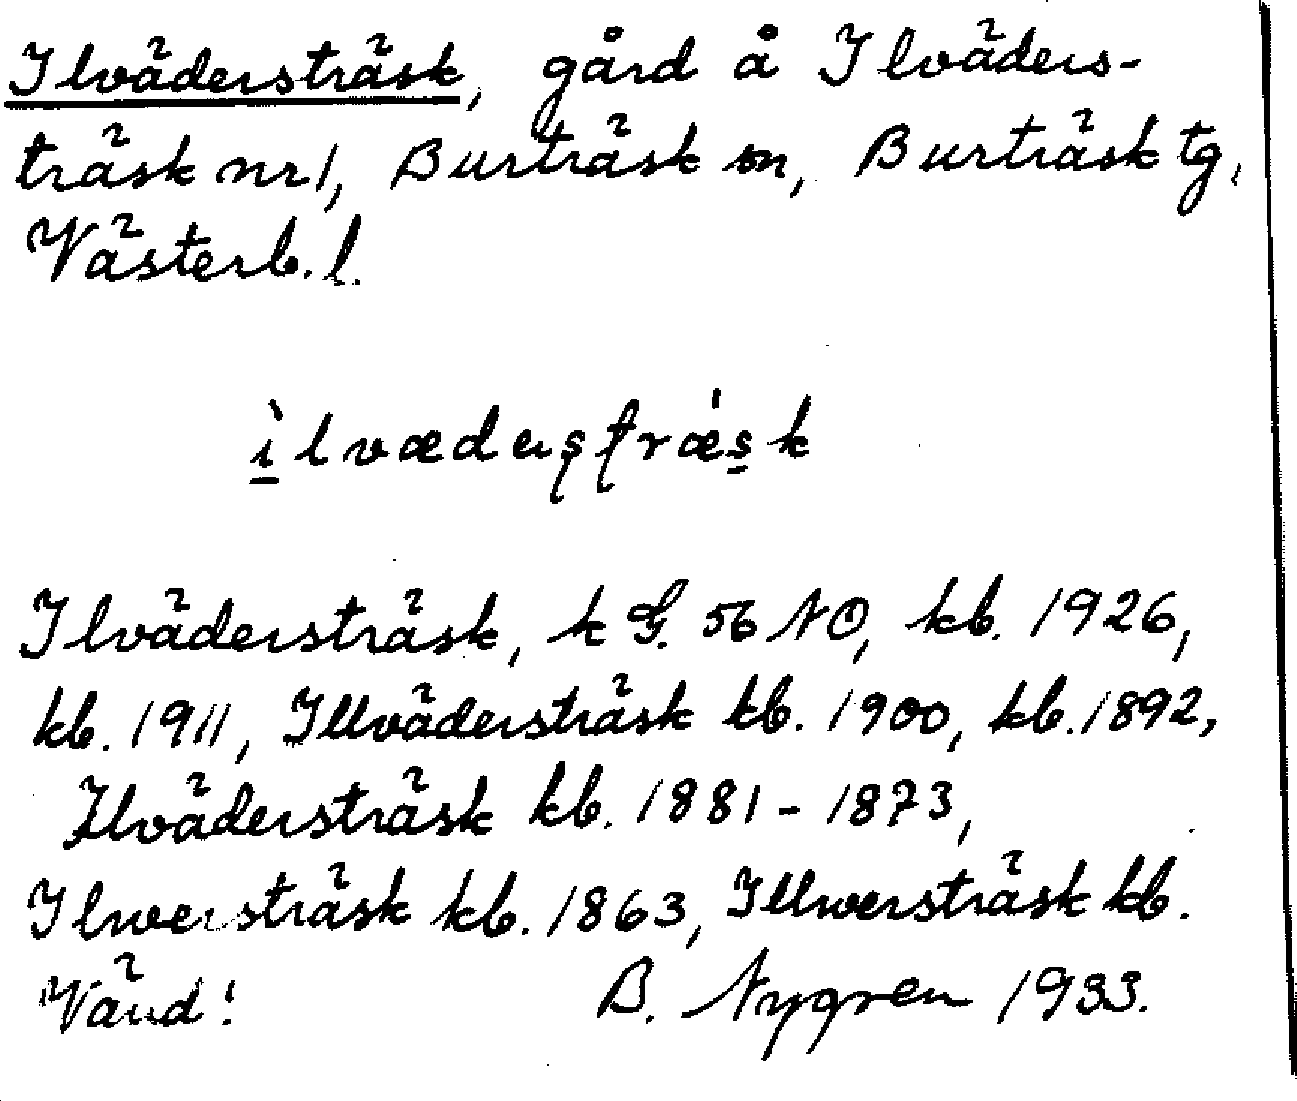 Ilvädersträsk, gård å Ilväders-
träsk nr 1, Burträsk sn, Burträsk tg,
Västerb. l.
ìlvædeʂʈræ̍sk
Ilvädersträsk, k G. 56 NO, kb. 1926,
kb. 1911, Illvädersträsk kb. 1900, kb. 1892,
Ilvädersträsk kb. 1881-1873,
Ilwersträsk kb. 1863, Illwersträsk kb.
Vänd! B. Nygren 1933.